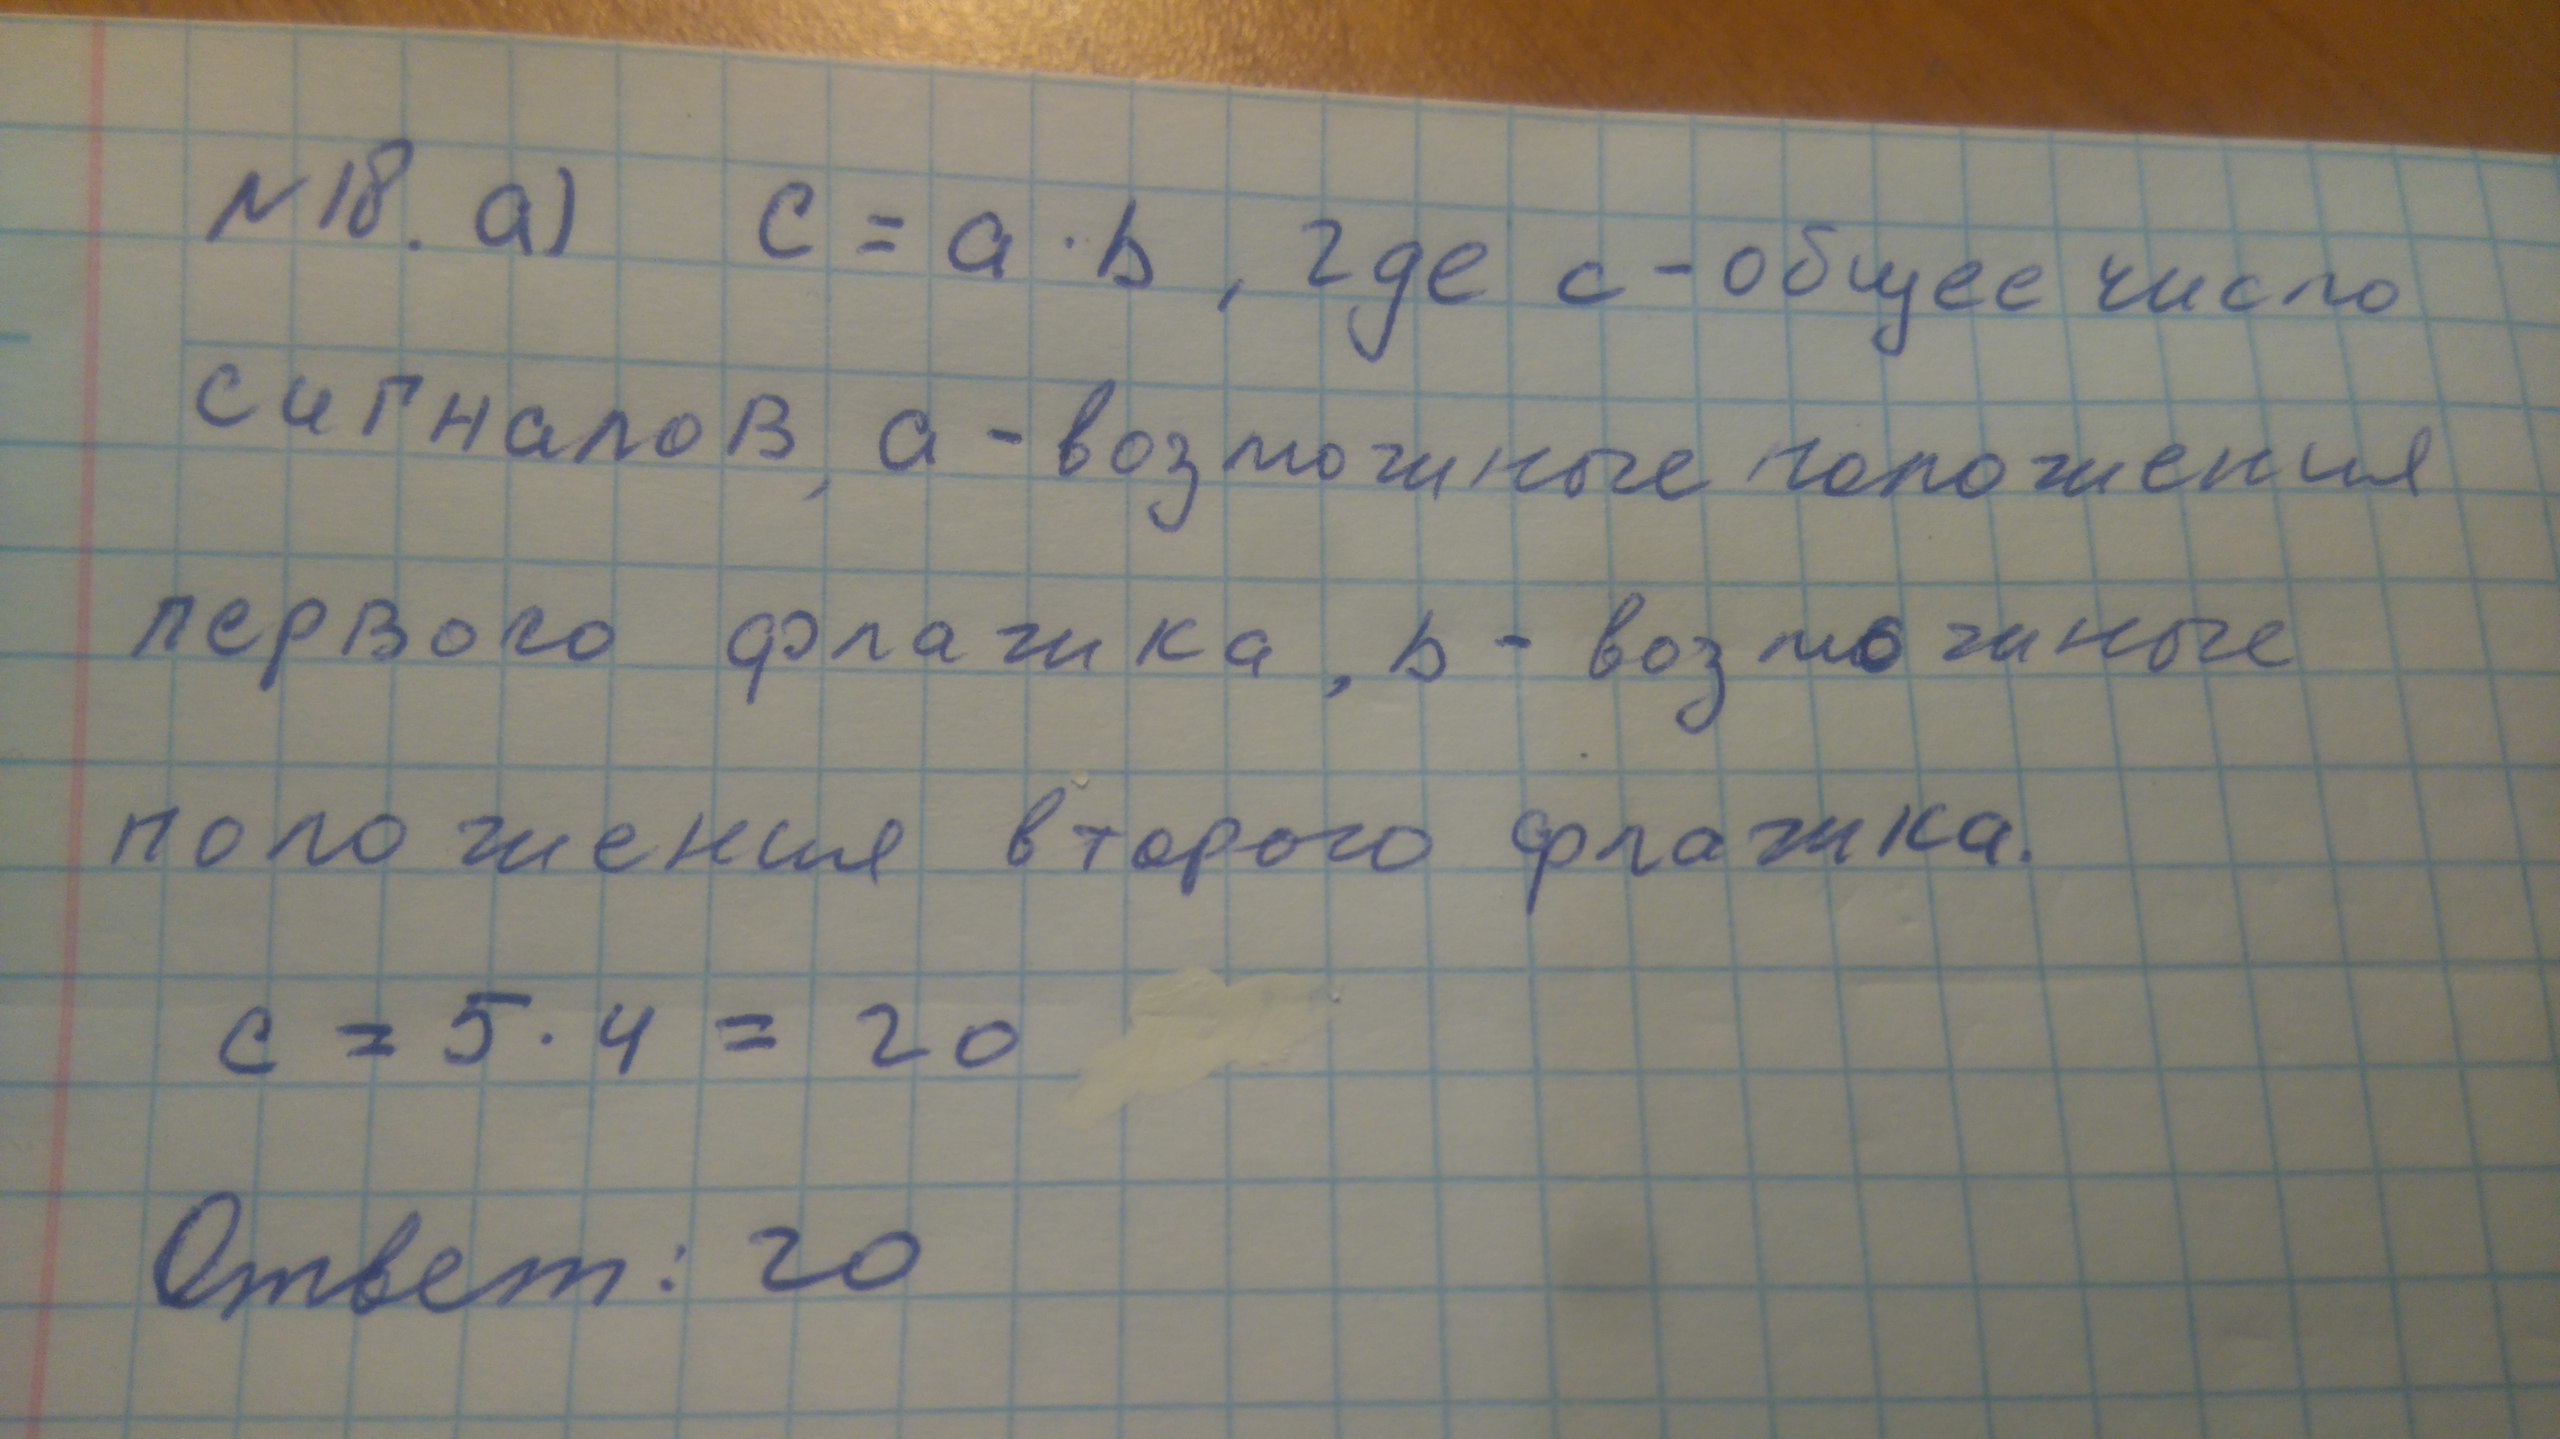 №18. а) c = a · b, где c - общее число
сигналов, a - возможные положения
первого флажка, b - возможные
положения второго флажка.
c = 5 · 4 = 20
Ответ: 20